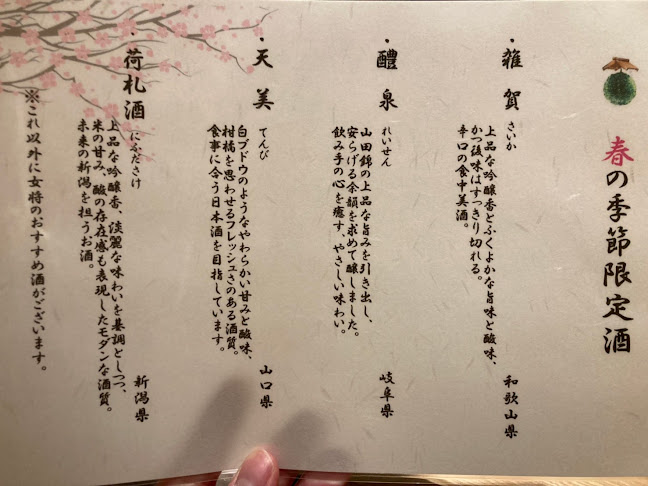 春の季節限定酒
・雑賀 さいか
上品な吟醸香とふくよかな旨味と酸味、
かつ後味はすっきり切れる。
辛口の食中美酒。
和歌山県
・醴泉 れいせん
山田錦の上品な旨みを引き出し、
安らげる余韻を求めて醸しました。
飲み手の心を癒す、やさしい味わい。
岐阜県
・天美 てんび
白ブドウのようなやわらかい甘みと酸味、
柑橘を思わせるフレッシュさのある酒質。
食事に合う日本酒を目指しています。
山口県
・荷札酒 にふださけ
上品な吟醸香、淡麗な味わいを基調としつつ、
米の甘み、酸の存在感も表現したモダンな酒質。
未来の新潟を担うお酒。
新潟県
※これ以外に女将のおすすめ酒がございます。